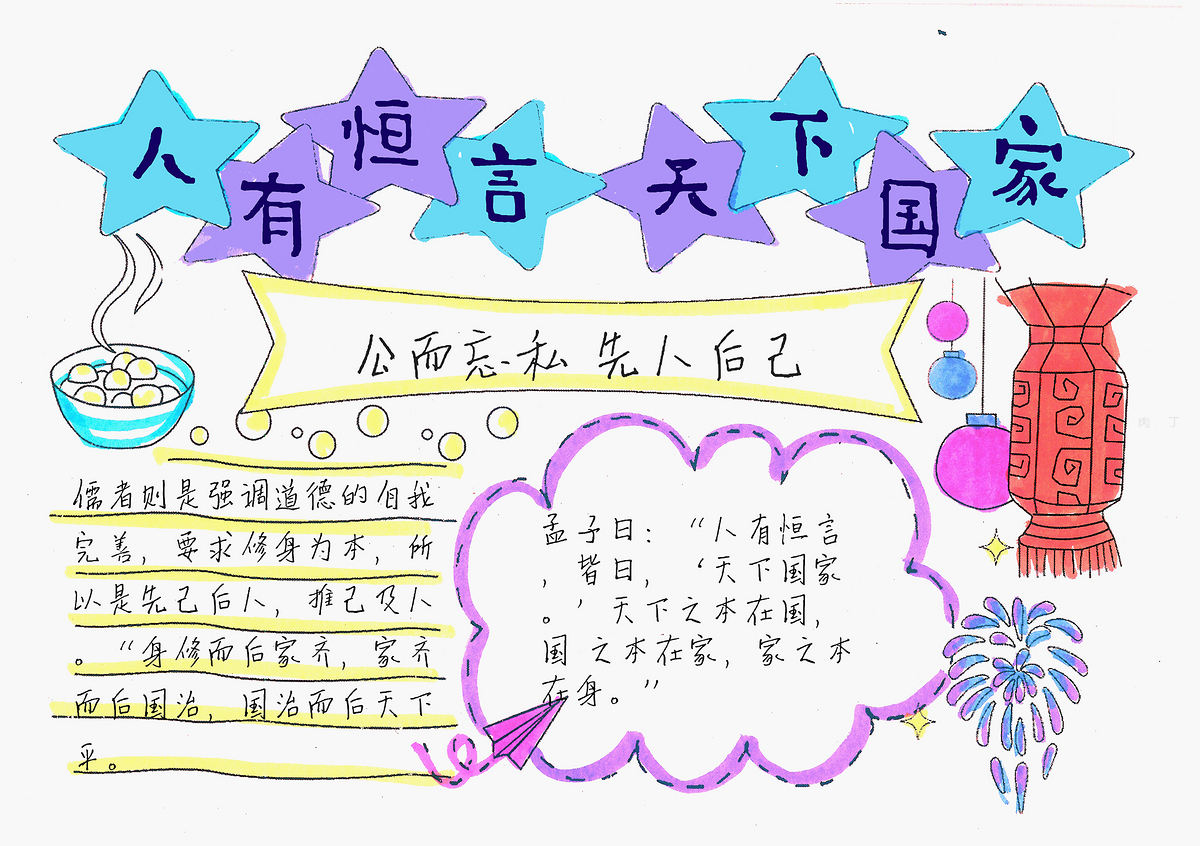 人有恒言天下国家
公而忘私先人后己
儒者则是强调道德的自我
完善，要求修身为本，所
以是先己后人，推己及人
。“身修而后家齐，家齐
而后国治，国治而后天下
平。
孟子曰：“人有恒言
，皆曰，‘天下国家
。’天下之本在国，
国之本在家，家之本
在身。”
肉丁